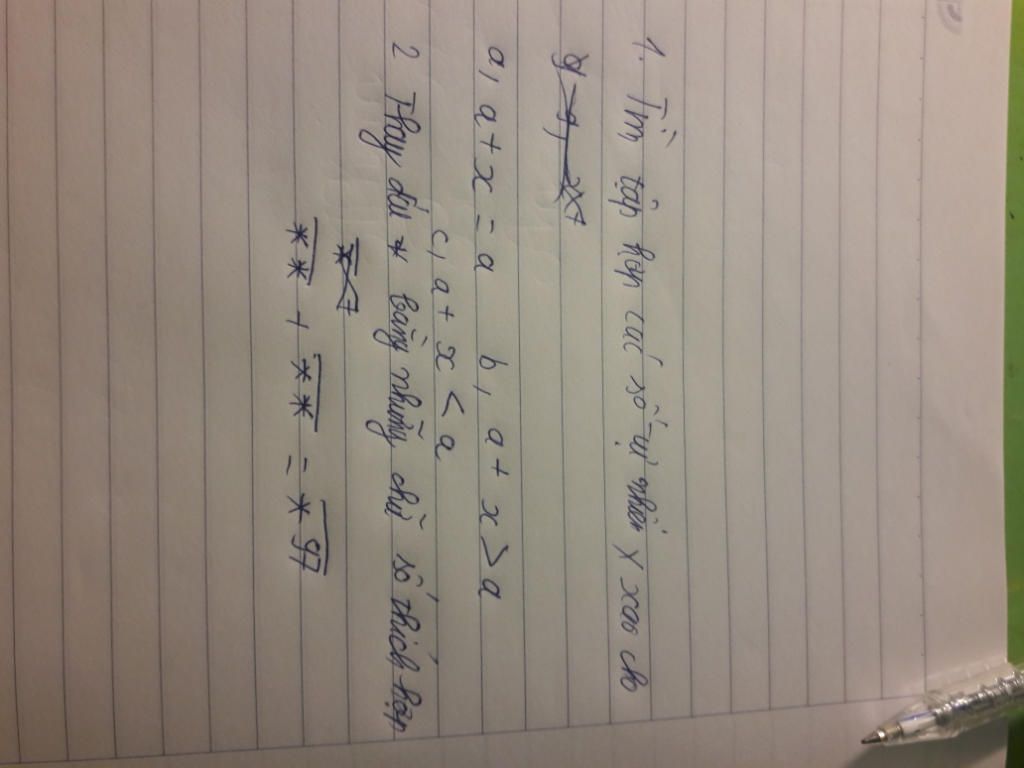 1. Tìm tập hợp các số tự nhiên x xao cho
a, a + x = a b, a + x > a
c, a + x < a
2 Thay dấu * bằng những chữ số thích hợp
** + ** = *97